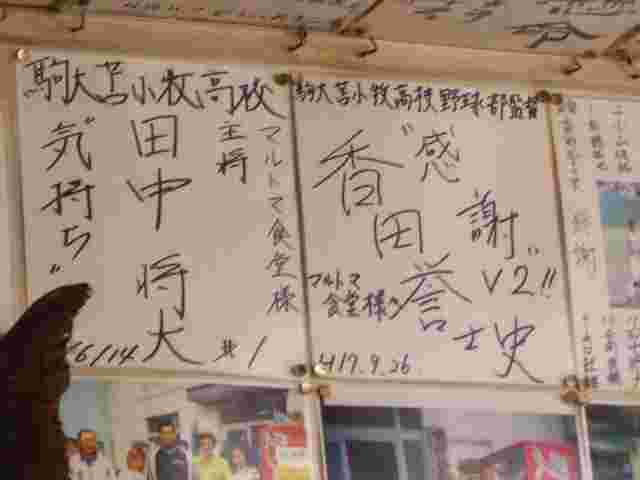 駒大苫小牧高校
マルトマ食堂様
主将
田中将大
"気持ち"
6/14
#1
駒大苫小牧高校野球部監督
"感謝"
V2!!
香田誉士史
マルトマ
食堂様
H17.9.26
感謝